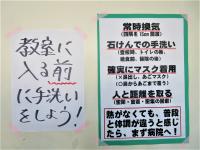 教室に
入る前
に手洗い
をしよう!
常時換気
(四隅を 15cm 開窓)
石けんでの手洗い
(登校時、トイレの後、
給食前、掃除の後)
確実にマスク着用
(×鼻出し、あごマスク)
(○鼻からあごまで覆う)
人と距離を取る
(密閉・密集・密接の回避)
熱がなくても、普段
と体調が違うと感じ
たら、まず病院へ!